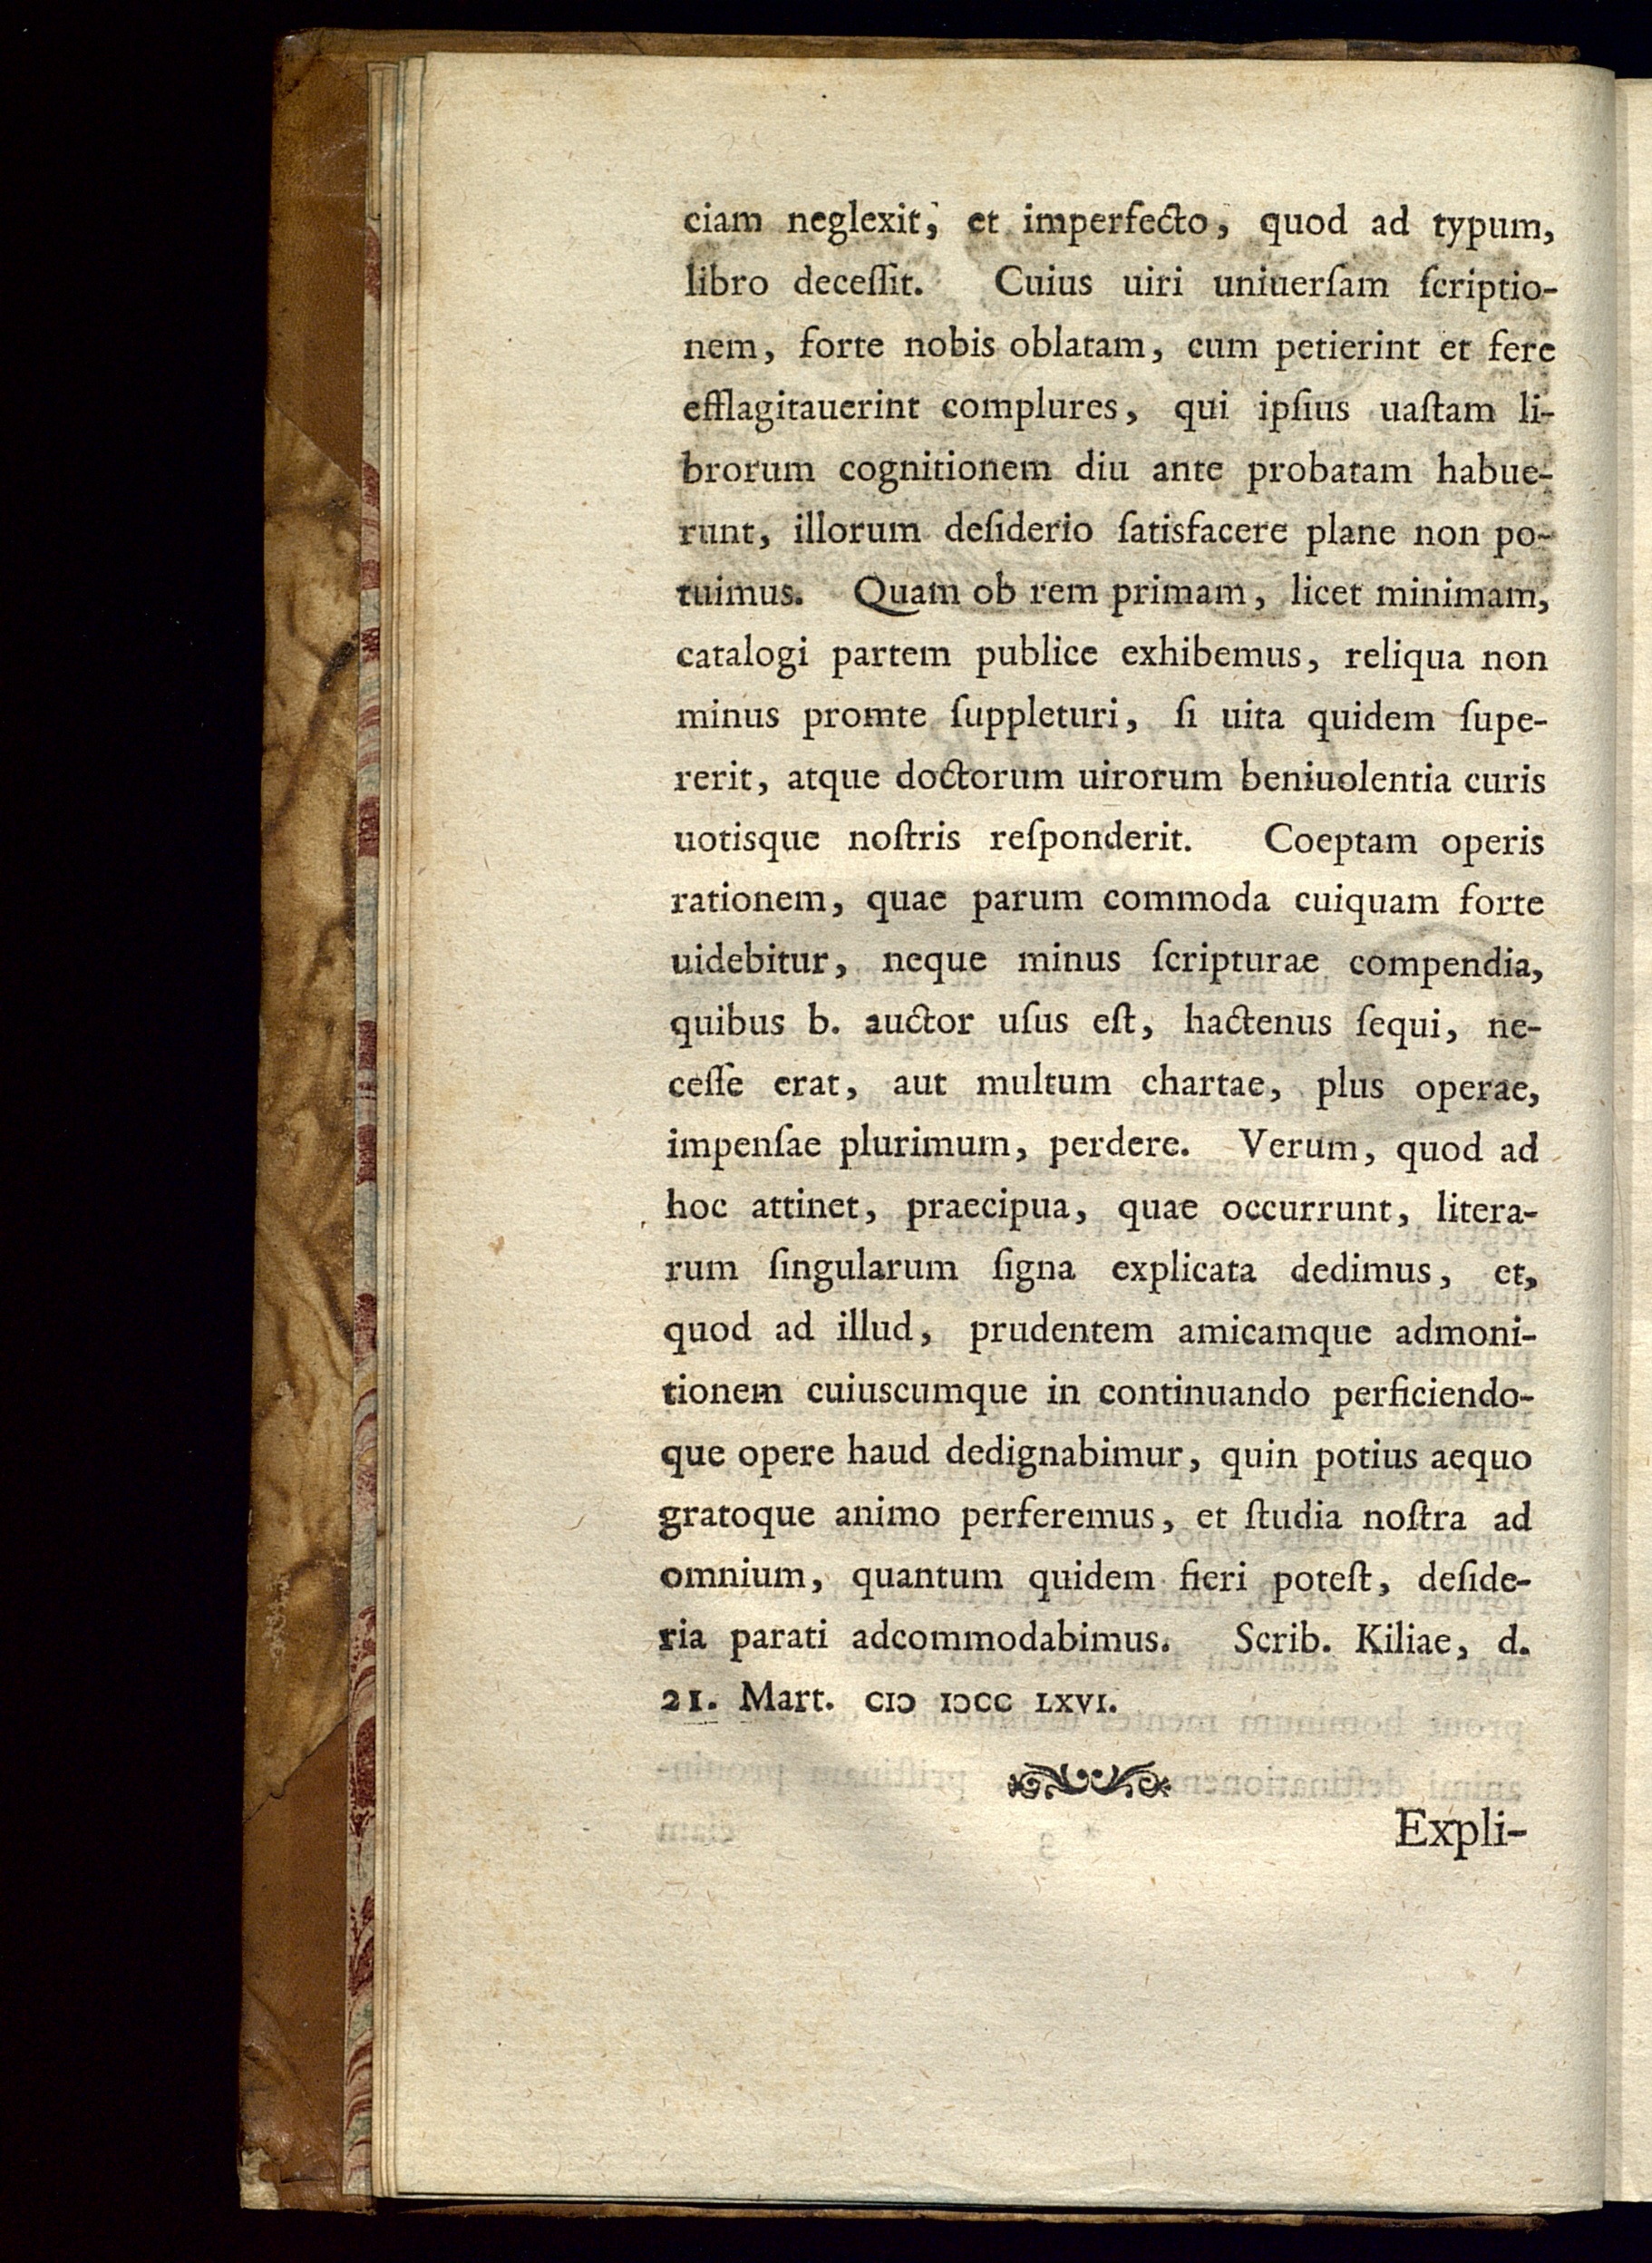 ciam neglexit, et imperfecto, quod ad typum,
libro deceſſit. Cuius uiri uniuerſam ſcriptio-
nem, forte nobis oblatam, cum petierint et fere
efflagitauerint complures, qui ipſius uaſtam li-
brorum cognitionem diu ante probatam habue-
runt, illorum deſiderio ſatisfacere plane non po-
tuimus. Quam ob rem primam, licet minimam,
catalogi partem publice exhibemus, reliqua non
minus promte ſuppleturi, ſi uita quidem ſupe-
rerit, atque doctorum uirorum beniuolentia curis
uotisque noſtris reſponderit. Coeptam operis
rationem, quae parum commoda cuiquam forte
uidebitur, neque minus ſcripturae compendia,
quibus b. auctor uſus eſt, hactenus ſequi, ne-
ceſſe erat, aut multum chartae, plus operae,
impenſae plurimum, perdere. Verum, quod ad
hoc attinet, praecipua, quae occurrunt, litera-
rum ſingularum ſigna explicata dedimus, et,
quod ad illud, prudentem amicamque admoni-
tionem cuiuscumque in continuando perficiendo-
que opere haud dedignabimur, quin potius aequo
gratoque animo perferemus, et ſtudia noſtra ad
omnium, quantum quidem fieri poteſt, deſide-
ria parati adcommodabimus. Scrib. Kiliae, d.
21. Mart. CIↃ IↃCC LXVI.
Expli-